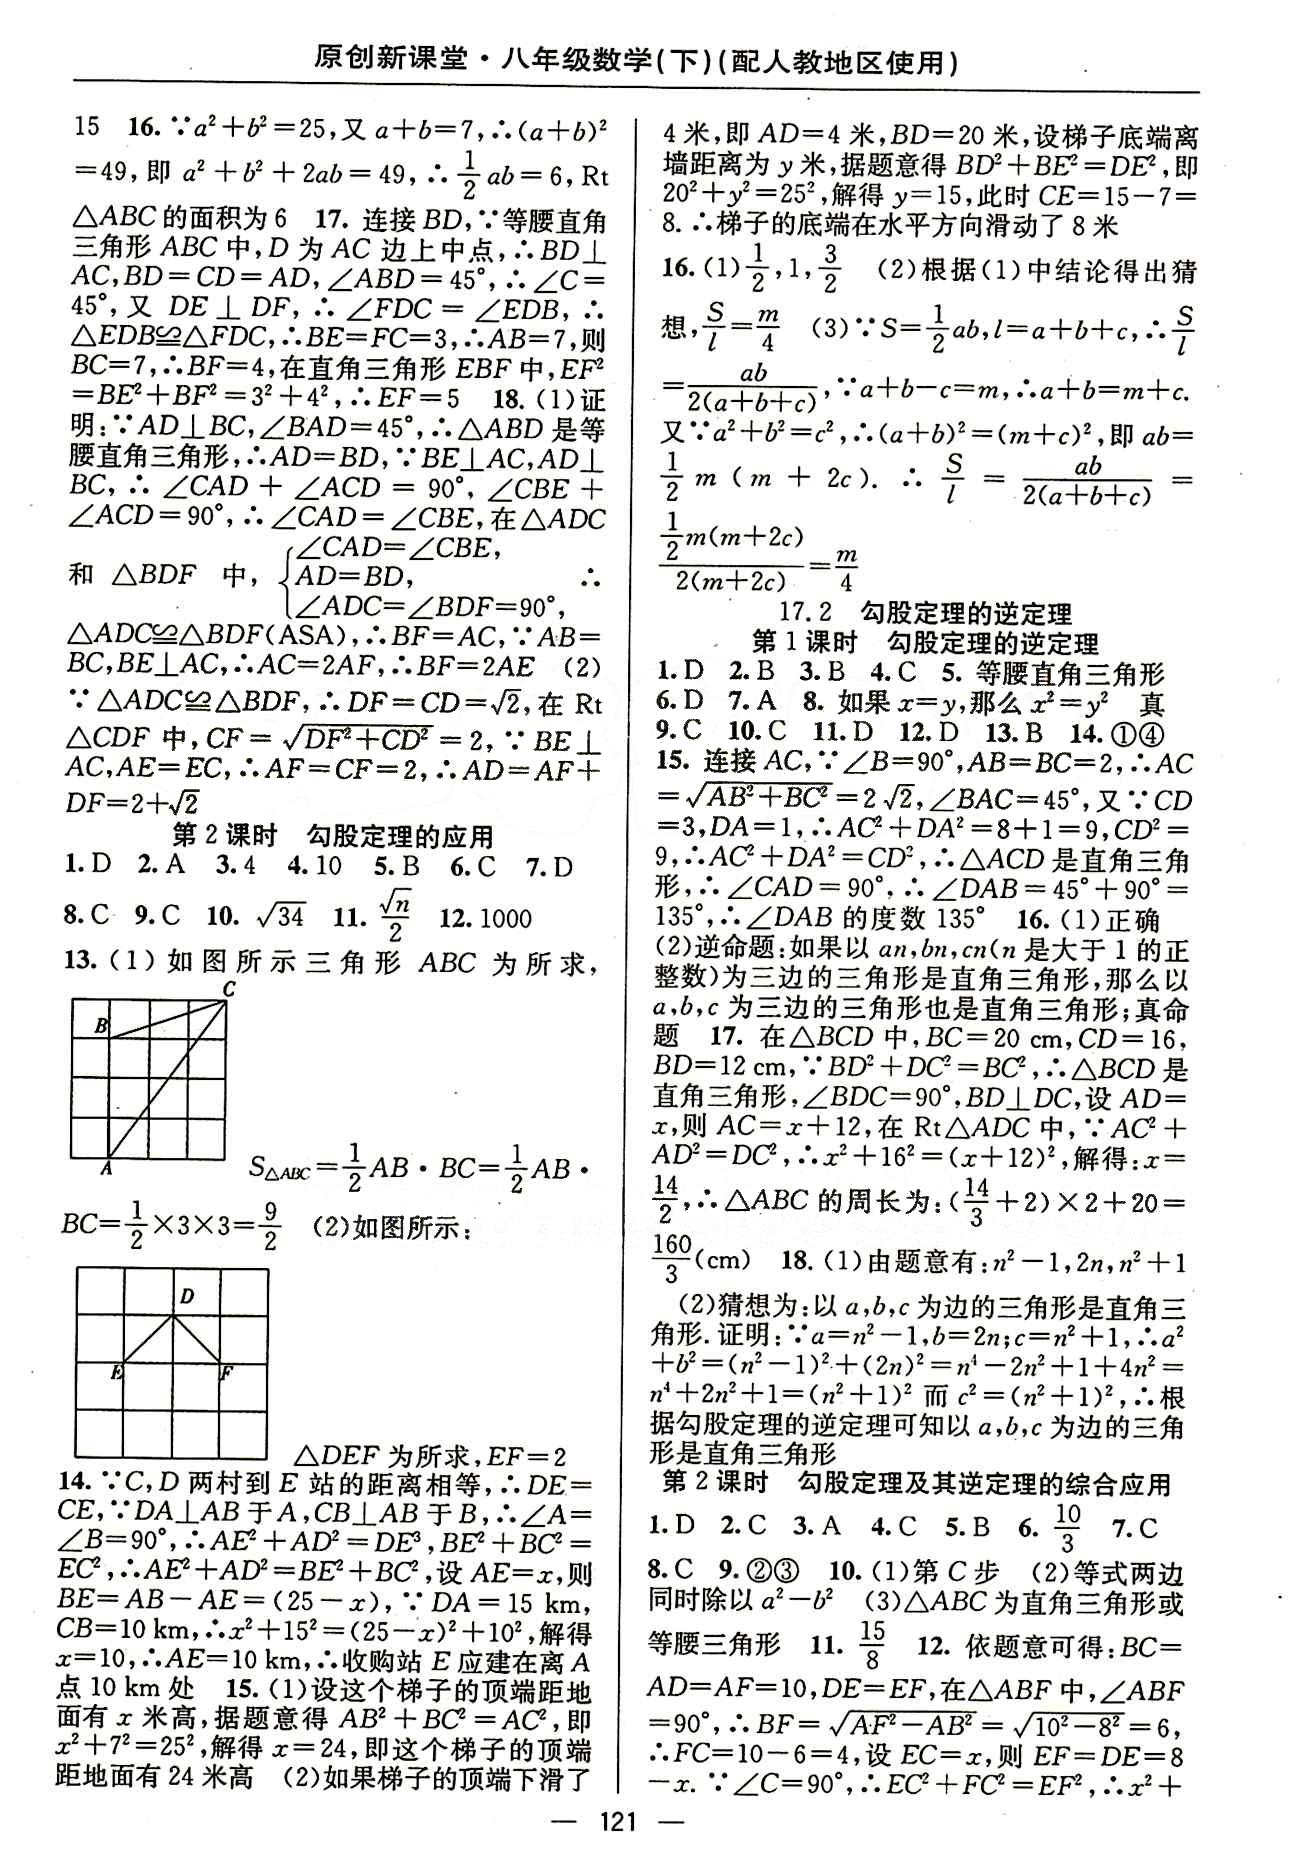 原创新课堂·八年级数学(下)(配人教地区使用)
15 16.∵a²+b²=25,又a+b=7,∴(a+b)²
=49,即 a²+b²+2ab=49,∴1/2ab=6,Rt
△ABC的面积为6 17. 连接BD,∵等腰直角
三角形ABC中,D为AC边上中点,∴BD⊥
AC,BD=CD=AD,∠ABD=45°,∴∠C=
45°,又 DE⊥DF,∴∠FDC=∠EDB,∴
△EDB≌△FDC,∴BE=FC=3,∴AB=7,则
BC=7,∴BF=4,在直角三角形EBF中,EF²
=BE²+BF²=3²+4²,∴EF=5 18.(1)证
明:∵AD⊥BC,∠BAD=45°,∴△ABD是等
腰直角三角形,∴AD=BD,∵BE⊥AC,AD⊥
BC,∴∠CAD+∠ACD=90°,∠CBE+
∠ACD=90°,∴∠CAD=∠CBE,在△ADC
和△BDF中,{∠CAD=∠CBE,
AD=BD, ∴
∠ADC=∠BDF=90°,
△ADC≌△BDF(ASA),∴BF=AC,∵AB=
BC,BE⊥AC,∴AC=2AF,∴BF=2AE (2)
∵△ADC≌△BDF,∴DF=CD=√2,在Rt
△CDF中,CF=√(DF²+CD²)=2,∵BE⊥
AC,AE=EC,∴AF=CF=2,∴AD=AF+
DF=2+√2
第2课时 勾股定理的应用
1.D 2.A 3.4 4.10 5.B 6.C 7.D
8.C 9.C 10. √34 11. √n/2 12.1000
13.(1)如图所示三角形ABC为所求,
C
B
A
S△ABC=1/2AB·BC=1/2AB·
BC=1/2×3×3=9/2 (2)如图所示:
D
E F
△DEF为所求,EF=2
14.∵C,D两村到E站的距离相等,∴DE=
CE,∵DA⊥AB于A,CB⊥AB于B,∴∠A=
∠B=90°,∴AE²+AD²=DE³,BE²+BC²=
EC²,∴AE²+AD²=BE²+BC²,设AE=x,则
BE=AB-AE=(25-x),∵DA=15 km,
CB=10 km,∴x²+15²=(25-x)²+10²,解得
x=10,∴AE=10 km,∴收购站E应建在离A
点10 km处 15.(1)设这个梯子的顶端距地
面有x米高,据题意得AB²+BC²=AC²,即
x²+7²=25²,解得x=24,即这个梯子的顶端
距地面有24米高 (2)如果梯子的顶端下滑了
4米,即AD=4米,BD=20米,设梯子底端离
墙距离为y米,据题意得BD²+BE²=DE²,即
20²+y²=25²,解得y=15,此时CE=15-7=
8.∴梯子的底端在水平方向滑动了8米
16.(1)1/2,1,3/2 (2)根据(1)中结论得出猜
想,S/l=m/4 (3)∵S=1/2ab,l=a+b+c,∴S/l
=ab/2(a+b+c),∵a+b-c=m,∴a+b=m+c.
又∵a²+b²=c²,∴(a+b)²=(m+c)²,即ab=
1/2m(m+2c).∴S/l=ab/2(a+b+c)=
1/2m(m+2c)/2(m+2c)=m/4
17.2 勾股定理的逆定理
第1课时 勾股定理的逆定理
1.D 2.B 3.B 4.C 5. 等腰直角三角形
6.D 7.A 8. 如果x=y,那么x²=y² 真
9.C 10.C 11.D 12.D 13.B 14.①④
15. 连接AC,∵∠B=90°,AB=BC=2,∴AC
=√(AB²+BC²)=2√2,∠BAC=45°,又∵CD
=3,DA=1,∴AC²+DA²=8+1=9,CD²=
9,∴AC²+DA²=CD²,∴△ACD是直角三角
形,∴∠CAD=90°,∴∠DAB=45°+90°=
135°,∴∠DAB的度数135° 16.(1)正确
(2)逆命题:如果以an,bn,cn(n是大于1的正
整数)为三边的三角形是直角三角形,那么以
a,b,c为三边的三角形也是直角三角形;真命
题 17. 在△BCD中,BC=20 cm,CD=16,
BD=12 cm,∵BD²+DC²=BC²,∴△BCD是
直角三角形,∠BDC=90°,BD⊥DC,设AD=
x,则AC=x+12,在Rt△ADC中,∵AC²+
AD²=DC²,∴x²+16²=(x+12)²,解得:x=
14/2,∴△ABC的周长为:(14/3+2)×2+20=
160/3(cm) 18.(1)由题意有:n²-1,2n,n²+1
(2)猜想为:以a,b,c为边的三角形是直角三
角形.证明:∵a=n²-1,b=2n;c=n²+1,∴a²
+b²=(n²-1)²+(2n)²=n⁴-2n²+1+4n²=
n⁴+2n²+1=(n²+1)²而c²=(n²+1)²,∴根
据勾股定理的逆定理可知以a,b,c为边的三角
形是直角三角形
第2课时 勾股定理及其逆定理的综合应用
1.D 2.C 3.A 4.C 5.B 6. 10/3 7.C
8.C 9.②③ 10.(1)第C步 (2)等式两边
同时除以a²-b² (3)△ABC为直角三角形或
等腰三角形 11. 15/8 12. 依题意可得:BC=
AD=AF=10,DE=EF,在△ABF中,∠ABF
=90°,∴BF=√(AF²-AB²)=√(10²-8²)=6,
∴FC=10-6=4,设EC=x,则EF=DE=8
-x.∵∠C=90°,∴EC²+FC²=EF²,∴x²+
— 121 —